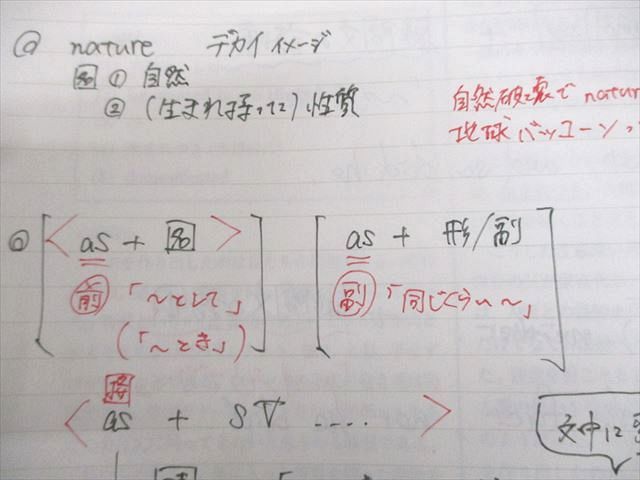 @ nature デカイイメージ
名 ① 自然
② (生まれ持った) 性質
自然破壊で natur
地球バッコーン
◎ [<as + 名>] [as + 形/副]
前 「～として」 副 「同じくらい～」
(「～とき」)
接
<as + SV ....>
文中に